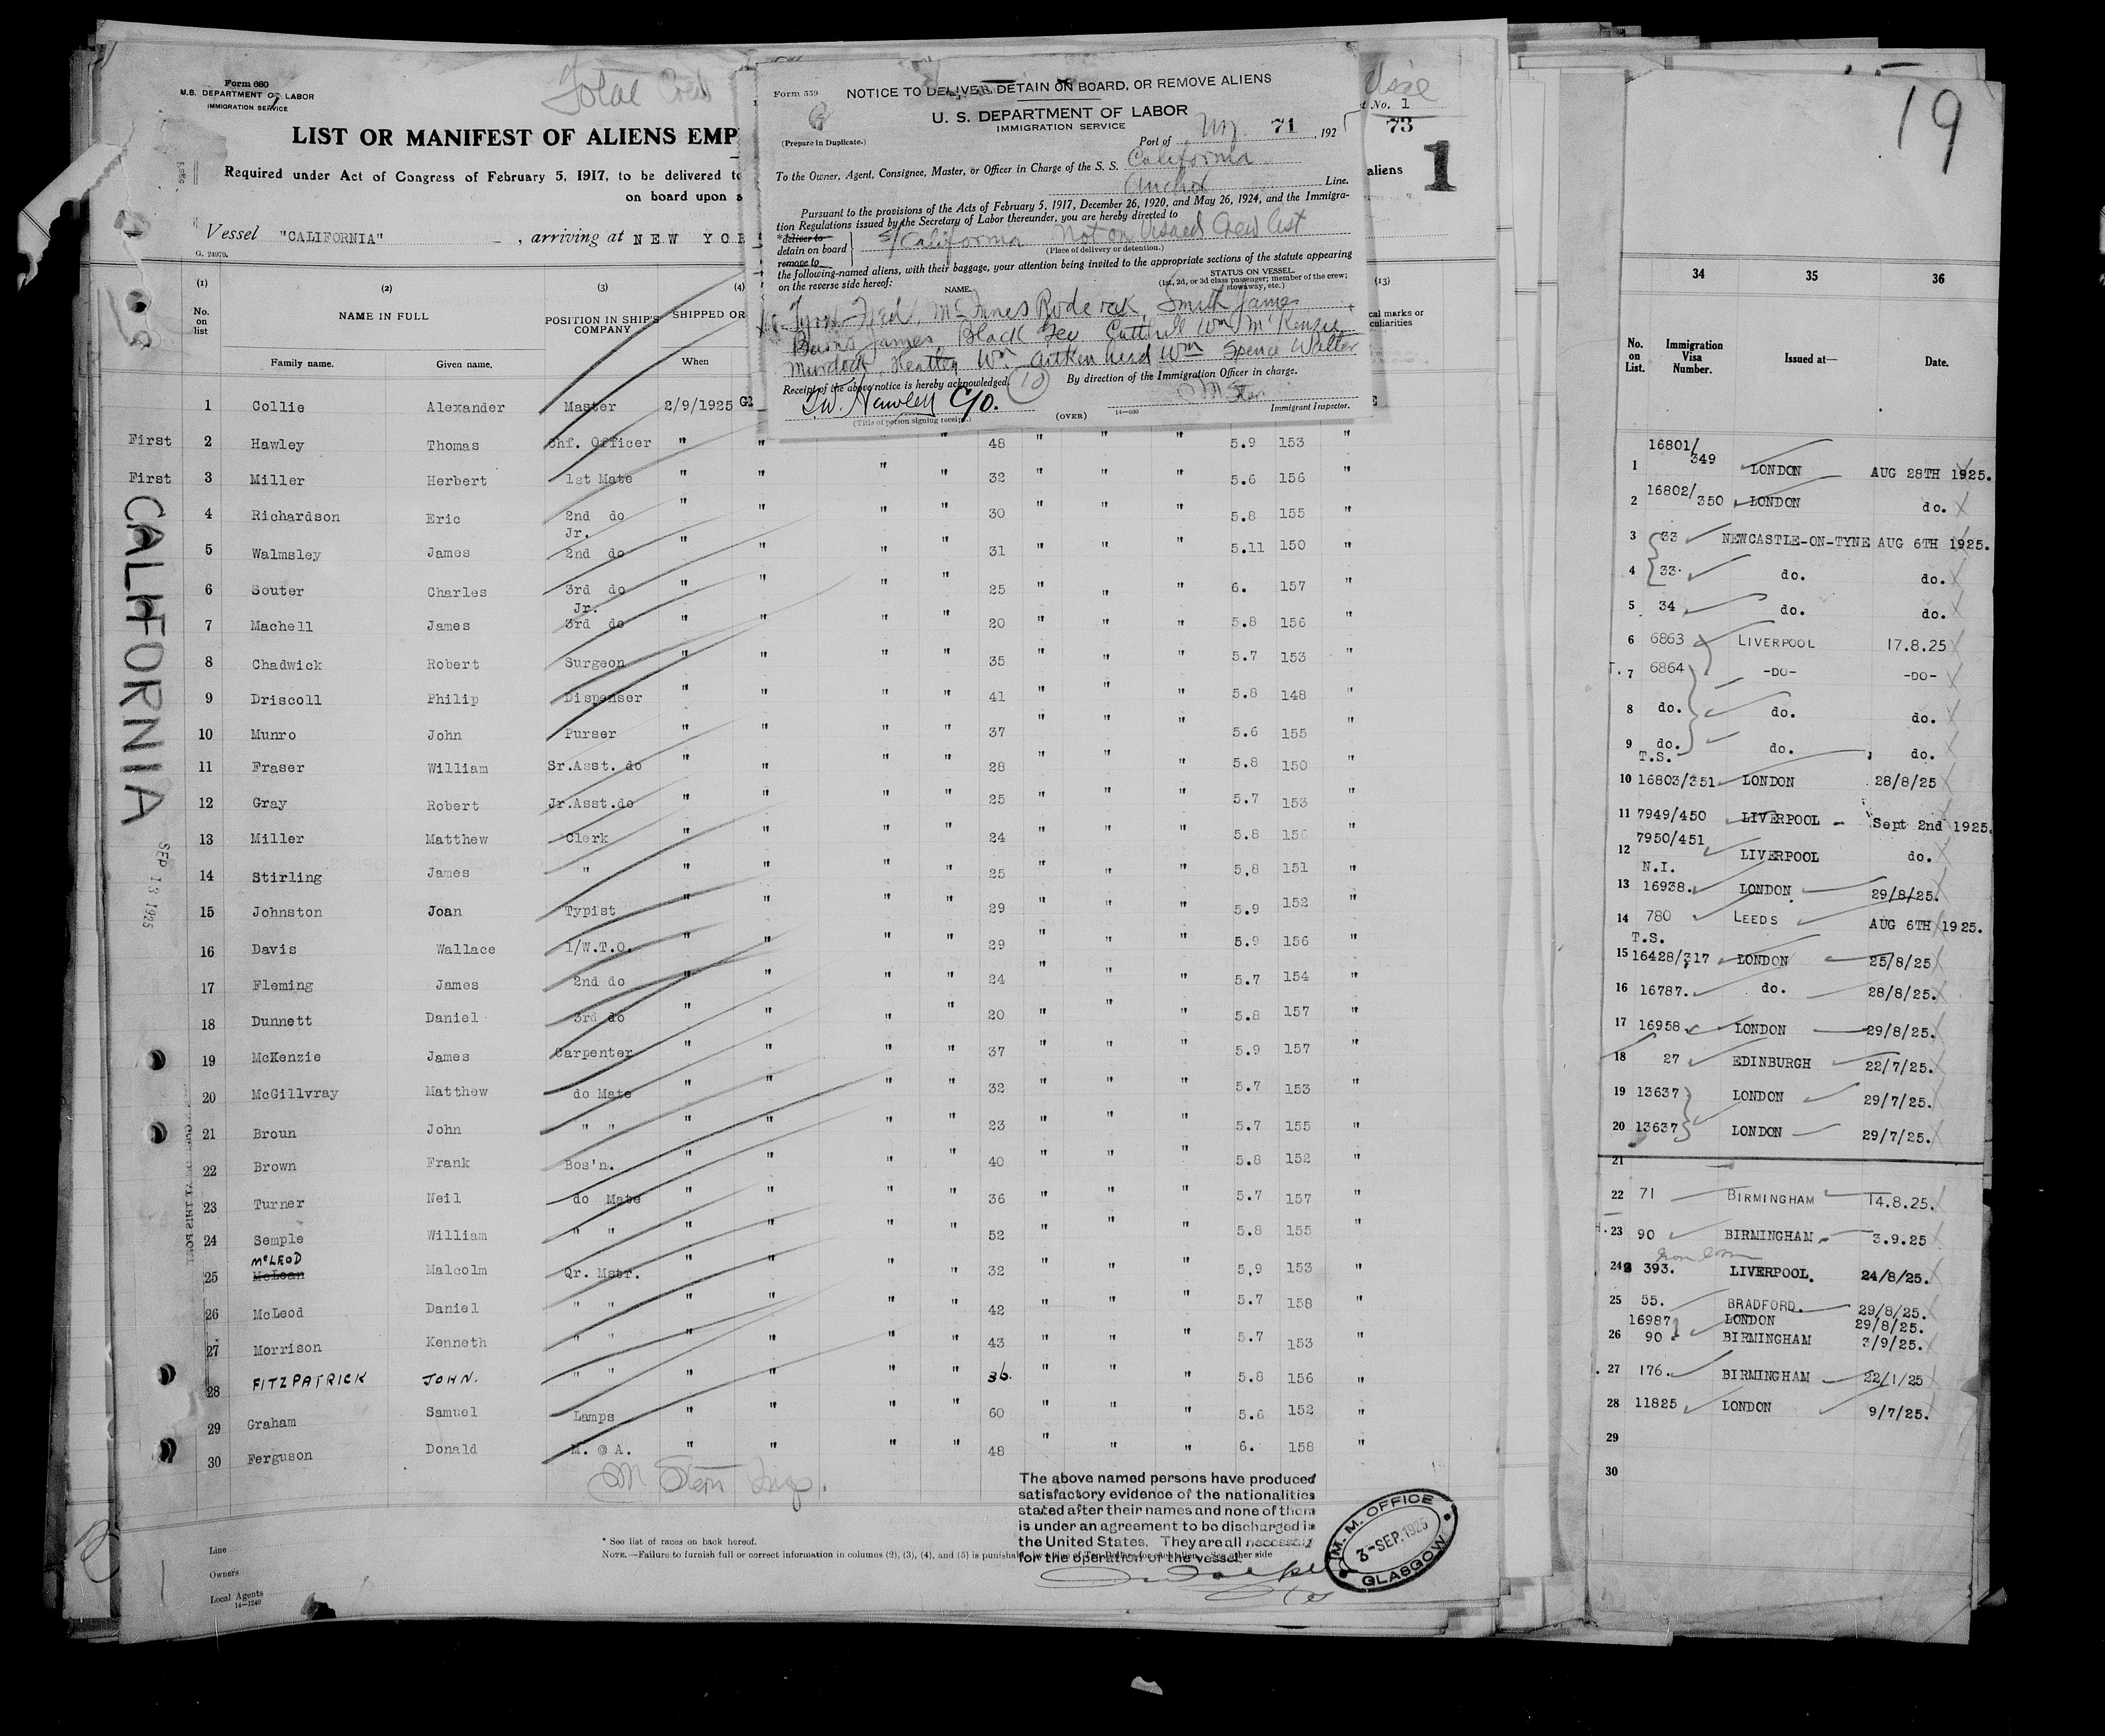 Form 680
U.S. DEPARTMENT OF LABOR
IMMIGRATION SERVICE
Total Crew
LIST OR MANIFEST OF ALIENS EMP
Required under Act of Congress of February 5, 1917, to be delivered to
on board upon a
Vessel "CALIFORNIA" , arriving at NEW YOR
G. 24979.
Form 559
NOTICE TO DELIVER, DETAIN ON BOARD, OR REMOVE ALIENS
U. S. DEPARTMENT OF LABOR
IMMIGRATION SERVICE
(Prepare in Duplicate.)
Port of N.Y. 71 , 1925
To the Owner, Agent, Consignee, Master, or Officer in Charge of the S. S. California
Anchor Line.
Pursuant to the provisions of the Acts of February 5, 1917, December 26, 1920, and May 26, 1924, and the Immigra-
tion Regulations issued by the Secretary of Labor thereunder, you are hereby directed to
*deliver to
detain on board
remove to
S/ California Not on Visaed Crew List
(Place of delivery or detention.)
the following-named aliens, with their baggage, your attention being invited to the appropriate sections of the statute appearing
on the reverse side hereof:
NAME.
STATUS ON VESSEL
(1st, 2d, or 3d class passenger; member of the crew;
stowaway, etc.)
Fred, McInnes Roderick, Smith James
Burns James, Black Geo Cutthill Wm McKenzie
Murdock, Heatley Wm Aitkenhead Wm Spence Walter
Receipt of the above notice is hereby acknowledged. (10) By direction of the Immigration Officer in charge.
C/O. M Stein
(Title of person signing receipt.) (OVER) 14—680 Immigrant Inspector.
t No. 1
73
aliens 1
19
(1) (2) (3) (4) (13)
No. on list
NAME IN FULL
POSITION IN SHIP'S COMPANY
SHIPPED OR
cal marks or
culiarities
Family name. Given name. When
1 Collie Alexander Master 2/9/1925
First 2 Hawley Thomas Chf. Officer " " 48 " " " 5.9 153 "
First 3 Miller Herbert 1st Mate " " " " 32 " " " 5.6 156 "
4 Richardson Eric 2nd do " " " 30 " " " 5.8 155 "
Jr.
5 Walmsley James 2nd do " " " " 31 " " " 5.11 150 "
6 Souter Charles 3rd do " " " " 25 " " " 6. 157 "
Jr.
7 Machell James 3rd do " " " " 20 " " " 5.8 156 "
8 Chadwick Robert Surgeon " " " " 35 " " " 5.7 153 "
9 Driscoll Philip Dispenser " " " " 41 " " " 5.8 148 "
10 Munro John Purser " " " " 37 " " " 5.6 155 "
11 Fraser William Sr.Asst. do " " " " 28 " " " 5.8 150 "
12 Gray Robert Jr.Asst.do " " " " 25 " " " 5.7 153 "
13 Miller Matthew Clerk " " " " 24 " " " 5.8 156 "
14 Stirling James " " " " " 25 " " " 5.8 151 "
15 Johnston Joan Typist " " " " 29 " " " 5.9 152 "
16 Davis Wallace 1/W.T.O. " " " " 29 " " " 5.9 156 "
17 Fleming James 2nd do " " " " 24 " " " 5.7 154 "
18 Dunnett Daniel 3rd do " " " " 20 " " " 5.8 157 "
19 McKenzie James Carpenter " " " " 37 " " " 5.9 157 "
20 McGillvray Matthew do Mate " " " " 32 " " " 5.7 153 "
21 Broun John " " " " " " 23 " " " 5.7 155 "
22 Brown Frank Bos'n. " " " " 40 " " " 5.8 152 "
23 Turner Neil do Mate " " " " 36 " " " 5.7 157 "
24 Semple William " " " " " " 52 " " " 5.8 155 "
McLEOD
25 McLean Malcolm Qr. Mstr. " " " 32 " " " 5.9 153 "
26 McLeod Daniel " " " " " " 42 " " " 5.7 158 "
27 Morrison Kenneth " " " " " " 43 " " " 5.7 153 "
28 FITZPATRICK JOHN. " " " " " " 36. " " " 5.8 156 "
29 Graham Samuel Lamps " " " " 60 " " " 5.6 152 "
30 Ferguson Donald M. @ A. " " " " 48 " " " 6. 158 "
M Stein Insp.
CALIFORNIA
SEP 13 1925
The above named persons have produced
satisfactory evidence of the nationalities
stated after their names and none of them
is under an agreement to be discharged in
the United States. They are all necessary
for the operation of the vessel
M. M. OFFICE
3-SEP.1925
GLASGOW
Line
Owners
Local Agents
14—1240
* See list of races on back hereof.
NOTE.—Failure to furnish full or correct information in columns (2), (3), (4), and (5) is punishable by a fine of Ten Dollars for each alien. See other side
34 35 36
No. on List. Immigration Visa Number. Issued at— Date.
1 16801/349 LONDON AUG 28TH 1925.
2 16802/350 LONDON do.
3 33 NEWCASTLE-ON-TYNE AUG 6TH 1925.
4 33. do. do.
5 34 do. do.
6 6863 LIVERPOOL 17.8.25
T. 7 6864 -DO- -DO-
8 do. do. do.
9 do. do. do.
T.S.
10 16803/351 LONDON 28/8/25
11 7949/450 LIVERPOOL - Sept 2nd 1925.
12 7950/451 LIVERPOOL do.
N.I.
13 16938. LONDON 29/8/25.
14 780 LEEDS AUG 6TH 1925.
T.S.
15 16428/317 LONDON 25/8/25
16 16787. do. 28/8/25.
17 16958 LONDON 29/8/25.
18 27 EDINBURGH 22/7/25.
19 13637 LONDON 29/7/25.
20 13637 LONDON 29/7/25.
21
22 71 BIRMINGHAM 14.8.25.
H. 23 90 BIRMINGHAM 3.9.25
24 393. LIVERPOOL. 24/8/25.
25 55. BRADFORD. 29/8/25.
16987 LONDON 29/8/25.
26 90 BIRMINGHAM 3/9/25.
27 176. BIRMINGHAM 22/1/25
28 11825 LONDON 9/7/25.
29
30